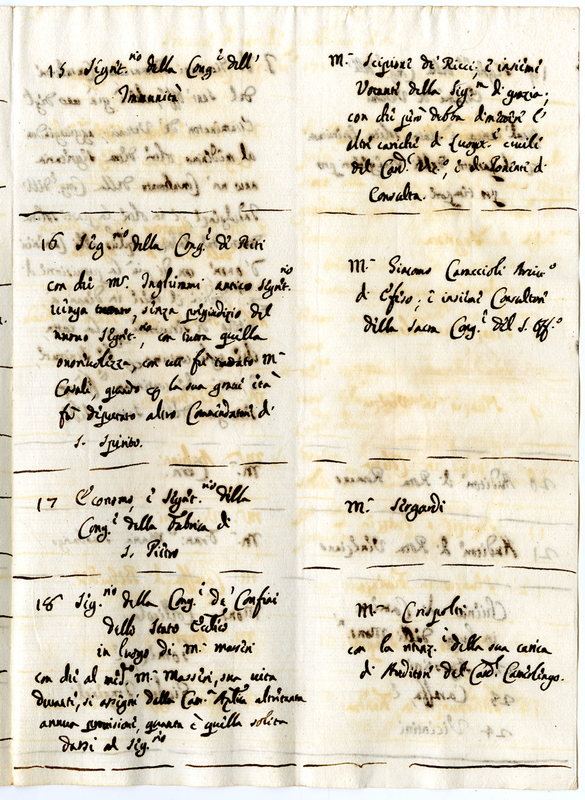 15 Segret.rio della Cong.e dell'
Immunità
M.r Scipione de' Ricci; è insieme
Votante della Seg.ra di grazia;
con che però debba dimettere l'
altre cariche di Luogot.e civile
del Card. Vic.o, e di
Consulta.
16 Seg.rio della Cong.e de' Riti
con che M.r Inghirami antico Segret.rio
venga trattato, senza pregiudizio del
nuovo Segret.rio, con tutta quella
onorevolezza, con cui fu trattato M.r
Casali, quando per la sua grave età
fu deputato altro Commendatore di
S. Spirito.
M.r Giacomo Caraccioli Arciv.o
di Efeso; è insieme Consultore
della Sacra Cong.e del S. Off.o
17 Economo, e Segret.rio della
Cong.e della Fabrica di
S. Pietro
M.r Sergardi
18 Seg.rio della Cong.e de' Confini
dello Stato Eccl.ico
in luogo di M.r Massei
con che al med.o M.r Massei, sua vita
durante, si assegni dalla Cam.a Aplica altrettanta
annua provisione, quanta è quella solita
darsi al Seg.rio
M.r Crispolti
con la ritenz.e della sua carica
di Auditore del Card. Camerlingo.